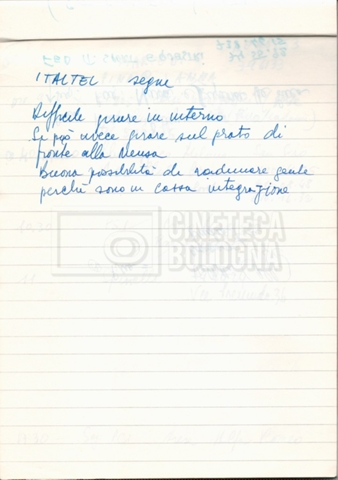 ITALTEL segue
Difficile girare in interno
Si può invece girare sul prato di
fronte alla Mensa
Buona possibilità di radunare gente
perché sono in cassa integrazione
CINETECA
BOLOGNA